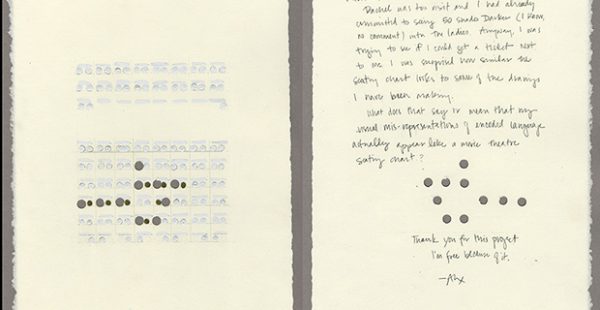 Rachel was too and I had already
committed to seeing 50 Shades Darker (I know,
no comment) with the ladies. Anyway, I was
trying to see if I could get a ticket next
to me I was surprised how similar the
seating chart looks to some of the drawings
I have been making.
What does that say or mean that my
visual mis-representations of encoded language
actually appear like a movie theatre
seating chart?
Thank you for this project
I'm free because of it.
—Alx